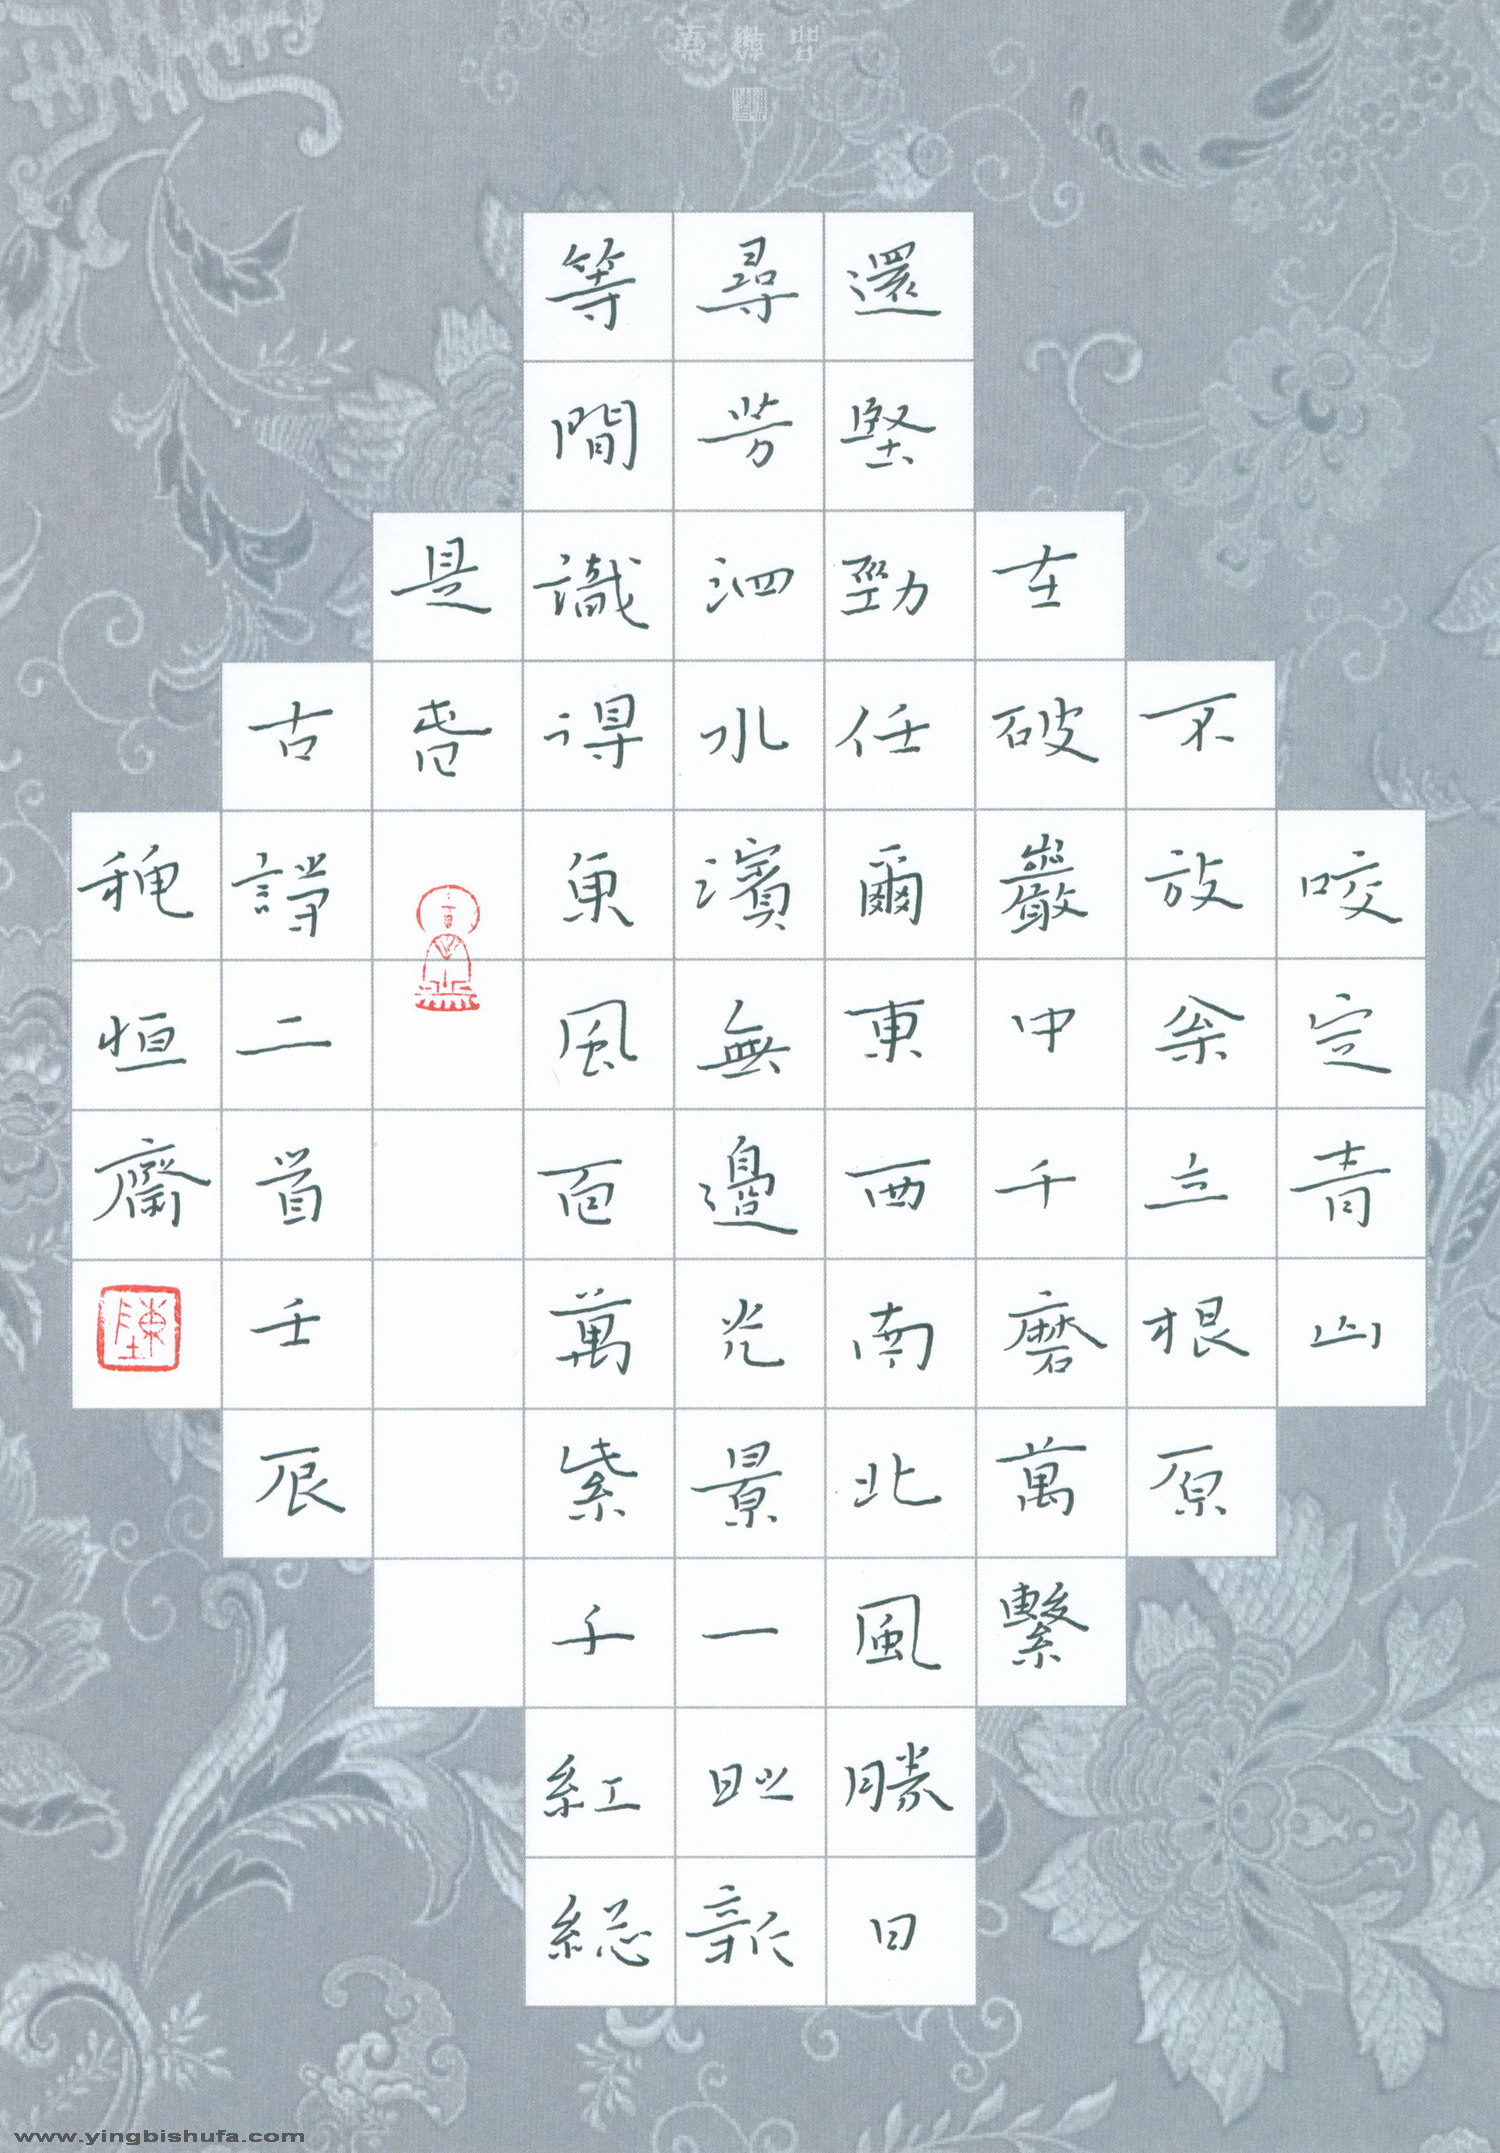 咬定青山
不放枀立根原
在破巖中千磨萬繫
還堅勁任爾東西南北風勝日
尋芳泗水濱無邊光景一時新
等間識得東風面萬紫千紅總
是春
古詩二首壬辰
恒齋
陳
www.yingbishufa.com